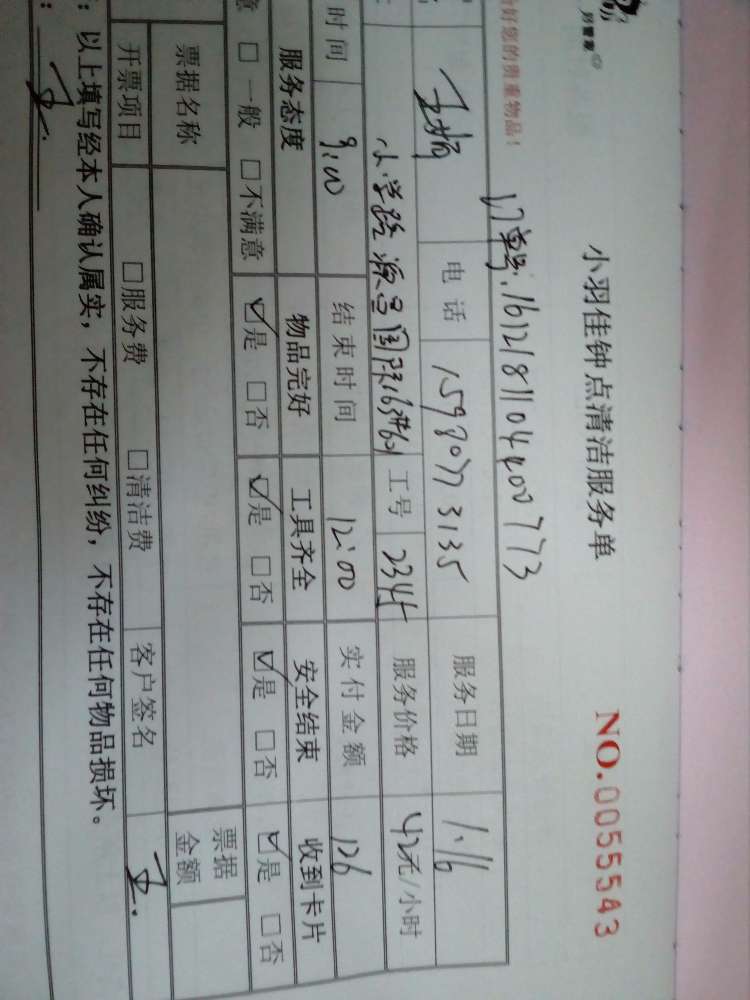 小羽佳钟点清洁服务单
NO.0055543
好您的贵重物品！
订单号:1612181104400773
王 电话 15980773135 服务日期 1.16
小学路 源昌国 工号 2345 服务价格 42元/小时
时间 9:00 结束时间 12:00 实付金额 126
服务态度 物品完好 工具齐全 安全结束 收到卡片
意 □一般 □不满意 ☑是 □否 ☑是 □否 ☑是 □否 ☑是 □否
票据名称 票据金额
开票项目 □服务费 □清洁费 客户签名 王
：以上填写经本人确认属实，不存在任何纠纷，不存在任何物品损坏。
：王